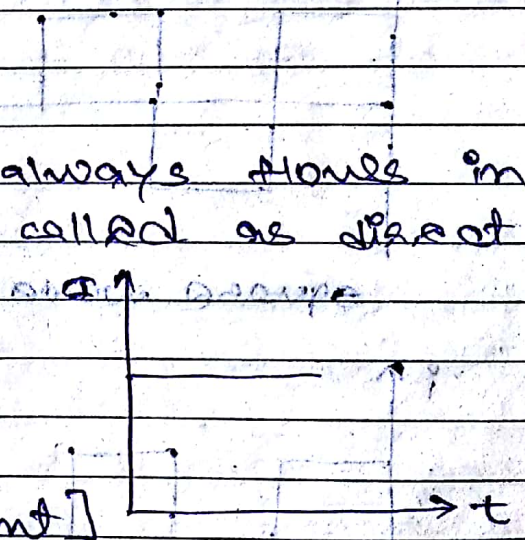 always flows in
called as direct
I
nt]
t